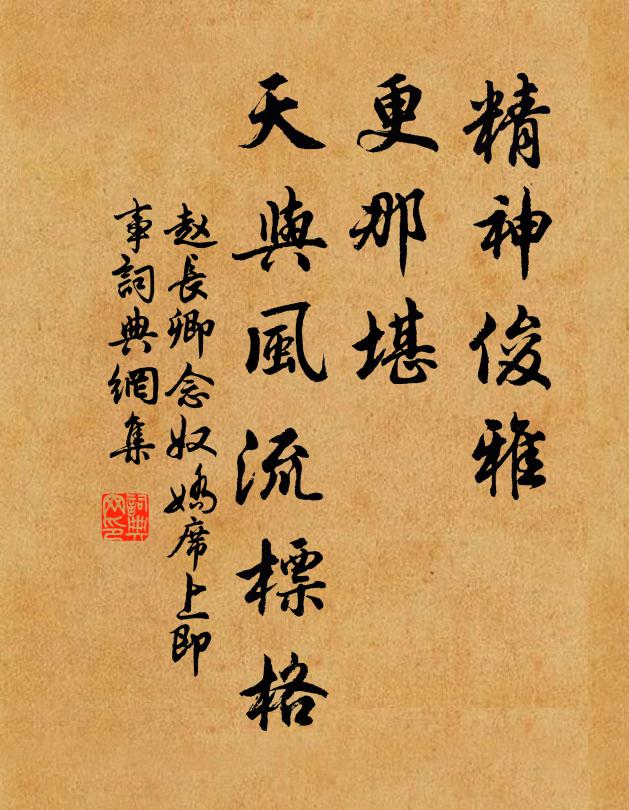 精神俊雅
更那堪
天與風流標格
赵長卿念奴嬌席上即
事詞典網集
詞典
网印